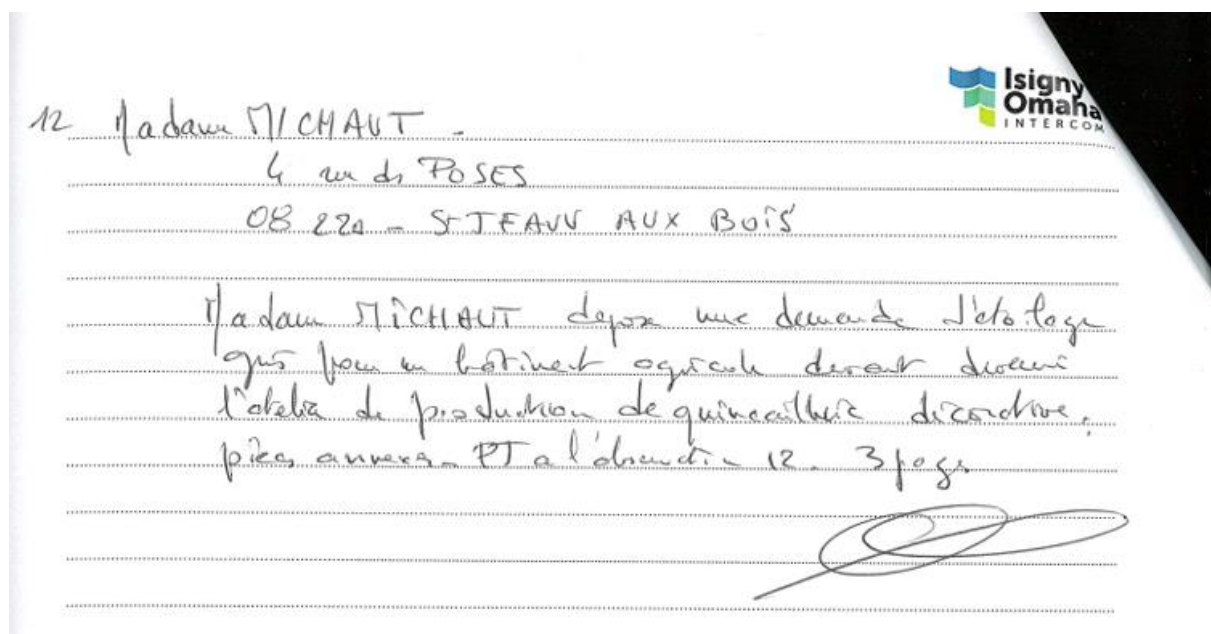 Isigny
Omaha
INTERCOM
12 Madame MICHAUT -
4 rue des POSES
08 220 - St JEAN AUX BOIS
Madame MICHAUT depose une demande d'étoilage
gris pour un bâtiment agricole devant devenir
l'atelier de production de quincaillerie décorative.
pièces annexes - PJ a l'observation 12 - 3 pages